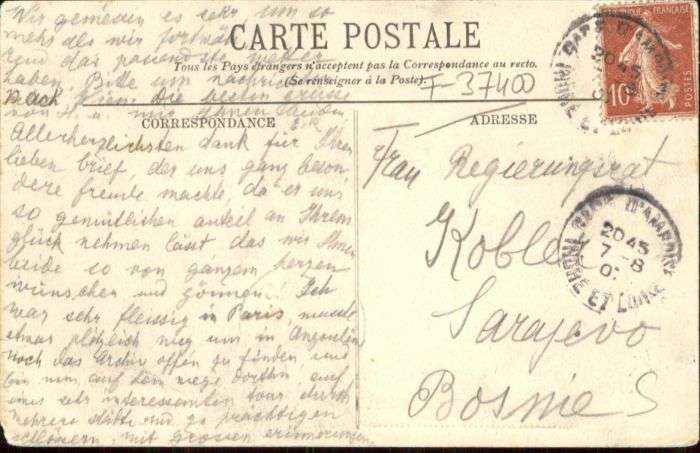 Wir geniesen es sehr um so
mehr als wir fortwäh
rend das passende wetter
haben. Bitte um nachricht
nach Wien. Die besten grüsse
von H. u. mir Ihnen beiden
CARTE POSTALE
Tous les Pays étrangers n'acceptent pas la Correspondance au recto.
(Se renseigner à la Poste).
F-37400
CORRESPONDANCE
Allerherzlichsten dank für Ihren
lieben brief, der uns ganz beson
dere freude machte, da er uns
so gemütlichen anteil an Ihrem
glück nehmen lässt das wir Ihnen
beide so von ganzem herzen
wünschen und gönnen! Ich
war sehr fleissig in Paris, musste
etwas plötzlich weg um in Angoulême
noch das Archiv offen zu finden, und
bin nun auf dem wege dorthin, auf
einer sehr interessanten tour durch
mehrere städte und zu prächtigen
schlössern, mit grossen erinnerungen
ADRESSE
Frau Regierungsrat
Koble
Sarajevo
Bosnie S
RÉPUBLIQUE FRANÇAISE
10
POSTES
2045
7-8
ET LOIRE